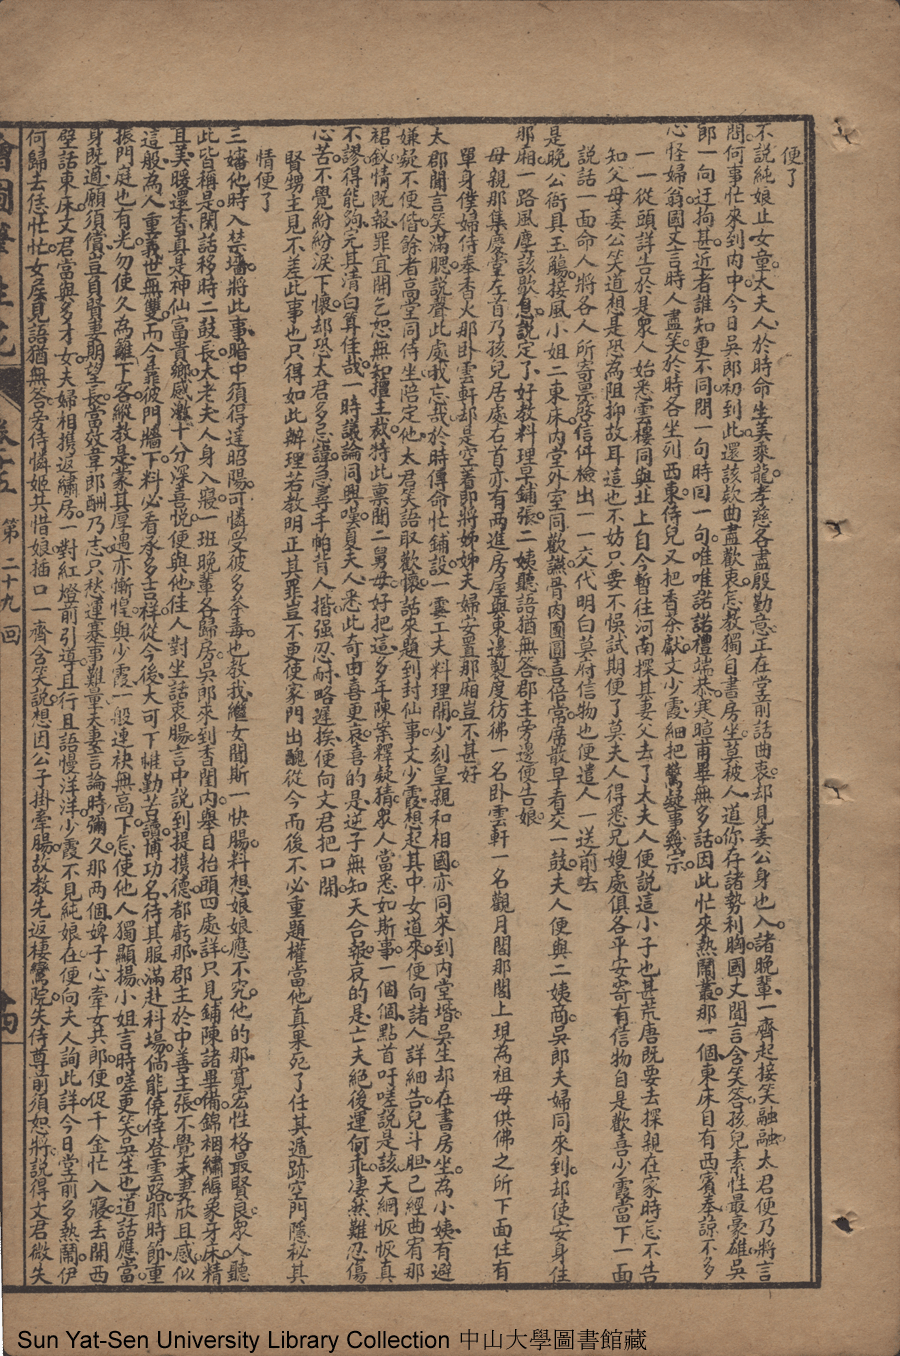 便了
不說純娘止女童太夫人於時命坐美乘龍孝慈各盡殷勤意正在堂前話曲衷却見姜公身也入諸晚輩一齊起接笑融融太君便乃將言
問何事忙來到內中今日吳郎初到此還該欵曲盡歡衷怎教獨自書房坐莫被人道你存諸勢利胸國丈聞言含笑答孩兒素性最豪雄吳
郎一向迂拘甚近者誰知更不同問一句時回一句唯唯諾諾禮端恭寒暄甫畢無多話因此忙來熱鬧叢那一個東床自有西賓奉諒不多
心怪婦翁國丈言時人盡笑於時各坐列西東侍兒又把香茶獻文少霞細把驚疑事幾宗
一一從頭詳告於是衆人始悉雲樓同與北上自今暫往河南探其妻父去了太夫人便說這小子也甚荒唐既要去探親在家時怎不告
知父母姜公笑道想是恐為阻抑故耳這也不妨只要不悞試期便了莫夫人得悉兄嫂處俱各平安寄有信物自是歡喜少霞當下一面
說話一面命人將各人所寄禀啓信件檢出一一交代明白莫府信物也便遣人一送前去
是晚公衙具玉觴接風小姐二東床內堂外室同歡讌骨肉團圓喜倍常席散早看交一鼓夫人便與二姨商吳郎夫婦同來到却使安身住
那廂一路風塵該歇息說定了好教料理早鋪張二姨聽語猶無答郡主旁邊便告娘
母親那集慶堂左首乃孩兒居處右首亦有兩進房屋與東邊製度彷彿一名卧雲軒一名觀月閣那閣上現為祖母供佛之所下面住有
單身僕婦侍奉香火那卧雲軒却是空着即將姊姊夫婦安置那廂豈不甚好
太郡聞言笑滿腮說聲此處我忘哉於時傳命忙鋪設一霎工夫料理開少刻皇親和相國亦同來到內堂堦吳生却在書房坐為小姨有避
嫌疑不便偕餘者高堂同侍坐陪定他太君笑語取歡懷話來題到封仙事文少霞想起其中女道來便向諸人詳細告兒斗胆已經曲宥那
裙釵情既報罪宜開乞恕無知擅主裁特此禀聞二舅母好把這多年陳案釋疑猜衆人當悉如斯事一個個點首吁嗟說是該天網恢恢真
不謬得能夠元其清白算佳哉一時議論同興嘆夏夫人悉此奇由喜更哀喜的是逆子無知天合報哀的是亡夫絕後運何乖凄然難忍傷
心苦不覺紛紛淚下懷却恐太君多忌諱急尋手帕背人揩强忍耐略遲挨便向文君把口開
賢甥主見不差此事也只得如此辦理若教明正其罪豈不更使家門出醜從今而後不必重題權當他真果死了任其遁跡空門隱秘其
情便了
三嬸他時入禁墻將此事暗中須得達昭陽可憐受彼多荼毒也教我繼女聞斯一快腸料想娘娘應不究他的那寬宏性格最賢良衆人聽
此皆稱是閑話移時二鼓長大老夫人身入寢一班晚輩各歸房吳郎來到香閨內舉目抬頭四處詳只見鋪陳諸畢備錦裀繡縟象牙床精
且美暖還香真是神仙富貴鄉感激十分深喜悅便與他佳人對坐話衷腸言中說到提携德都虧那郡主於中善主張不覺夫妻欣且感似
這般為人重義世無雙而今靠彼門牆下料必看承多吉祥從今後大可下帷勤苦讀博功名待其服滿赴科塲倘能僥倖登雲路那時節重
振門庭也有光勿使久為籬下客縱教是蒙其厚遇亦慚惶與少霞一般連袂無高下怎使他人獨顯揚小姐言時嗟更笑吳生也道話應當
身既適願須償豈肯賢妻期望長當效韋郎酬乃志只愁運蹇事難量夫妻言論時彌久那兩個婢子心牽女共郎便促千金忙入寢丟開西
壁話東床文君當與多才女夫婦相携返繡房一對紅燈前引導且行且語慢洋洋少霞不見純娘在便向夫人詢此詳今日堂前多熱鬧伊
何歸去恁忙忙女君見語猶無答旁侍憐姬共惜娘插口一齊含笑說想因公子掛牽腸故教先返棲鸞院失侍尊前須恕將說得文君微失
繪圖筆生花 卷十五 第二十九回
Sun Yat-Sen University Library Collection 中山大學圖書館藏